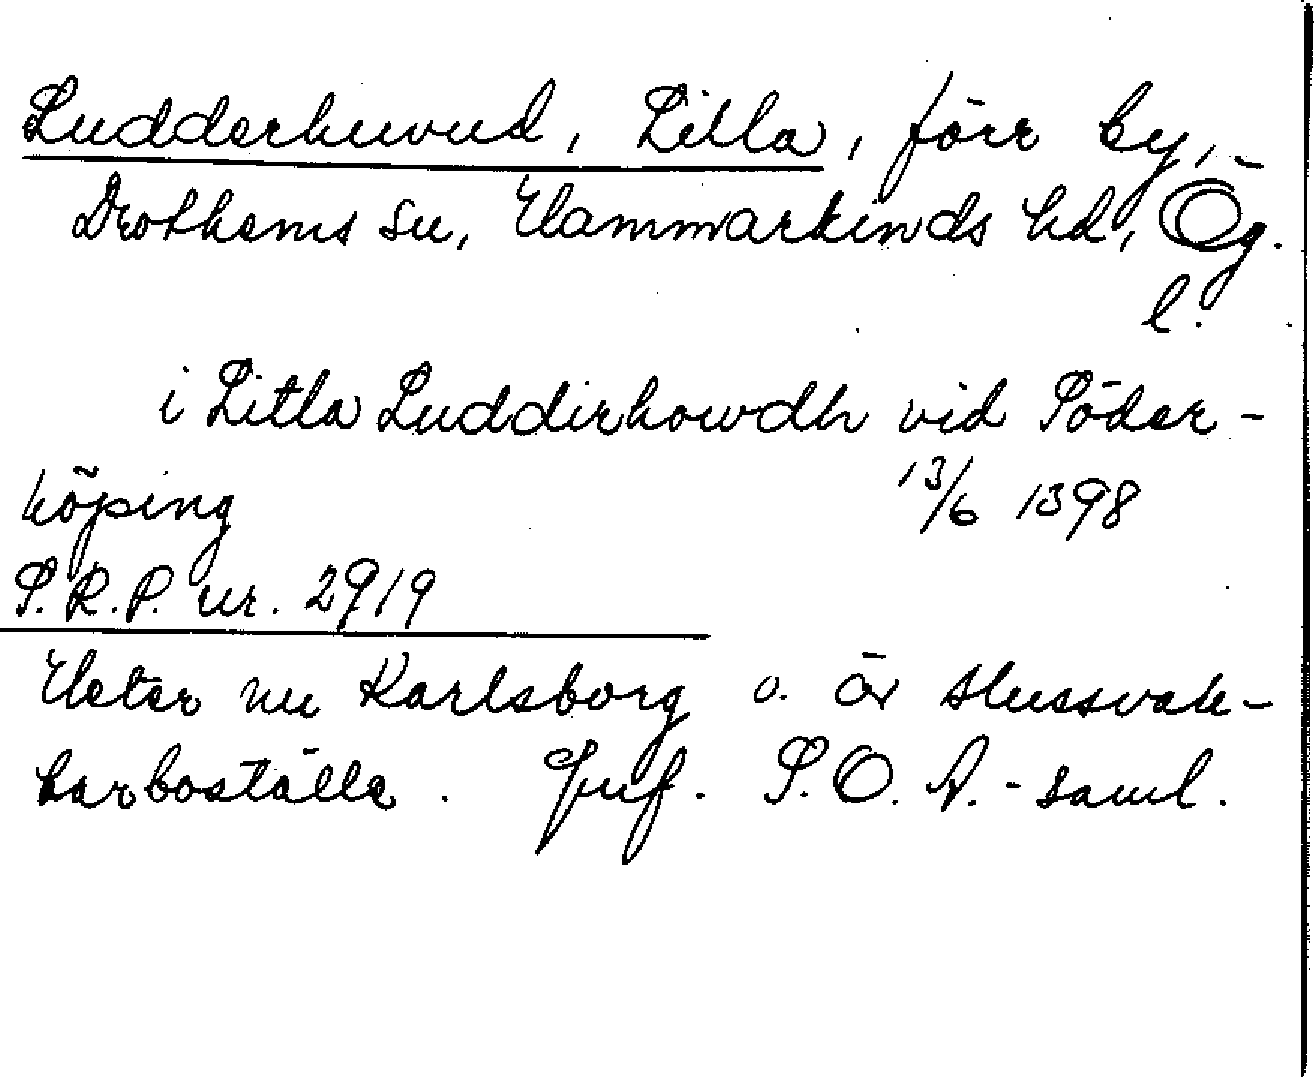 Ludderhuvud, Lilla, förr by,
Drothems sn, Hammarkinds hd, Ög.
l.
i Litla Luddirhowdh vid Söder-
köping 13/6 1398
S.R.P. nr. 2919
Heter nu Karlsborg o. är slussvak-
tarboställe. Jmf. S.O.A.-saml.